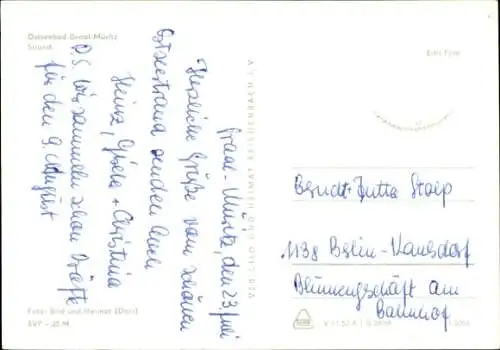 Ostseebad Graal-Müritz
Strand
Echt Foto
Graal-Müritz, den 23. Juli
Herzliche Grüße vom schönen
Ostseestrand senden Euch
Heinz, Gisela + Christina
P.S. Wir sammeln schon Kräfte
für den 9. August
VEB BILD UND HEIMAT REICHENBACH i. V.
Foto: Bild und Heimat (Darr)
EVP -,20 M
Berndt + Jutta Stolp
1138 Berlin-Kaulsdorf
Blumengeschäft am
Bahnhof